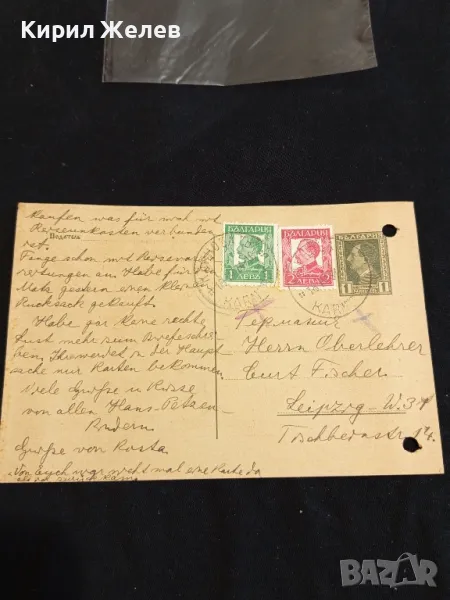 Кирил Желев
kaufen was für mich mit
Reiseunkosten verbunden
ist.
Податель
Fange schon mit Reisevorbe
reitungen an. Habe für den
Matz gestern einen kleinen
Rucksack gekauft.
Habe gar keine rechte
Lust mehr zum Briefeschrei
ben, Ihr werdet in der Haupt
sache nur Karten bekommen.
Viele Grüße u Küsse
von allen Hans-Petzen
Kindern
Grüße von Kosta
Von Euch war nicht mal eine Karte da
als ich zurück kam
БЪЛГАРИЯ
1 ЛЕВА 1
БЪЛГАРИЯ
2 ЛЕВА 2
БЪЛГАРИЯ
1 1
КАРЛ
Германия
Herrn Oberlehrer
Curt Fischer
Leipzig-W. 34
Tischbeinstr. 12.
BAZAR